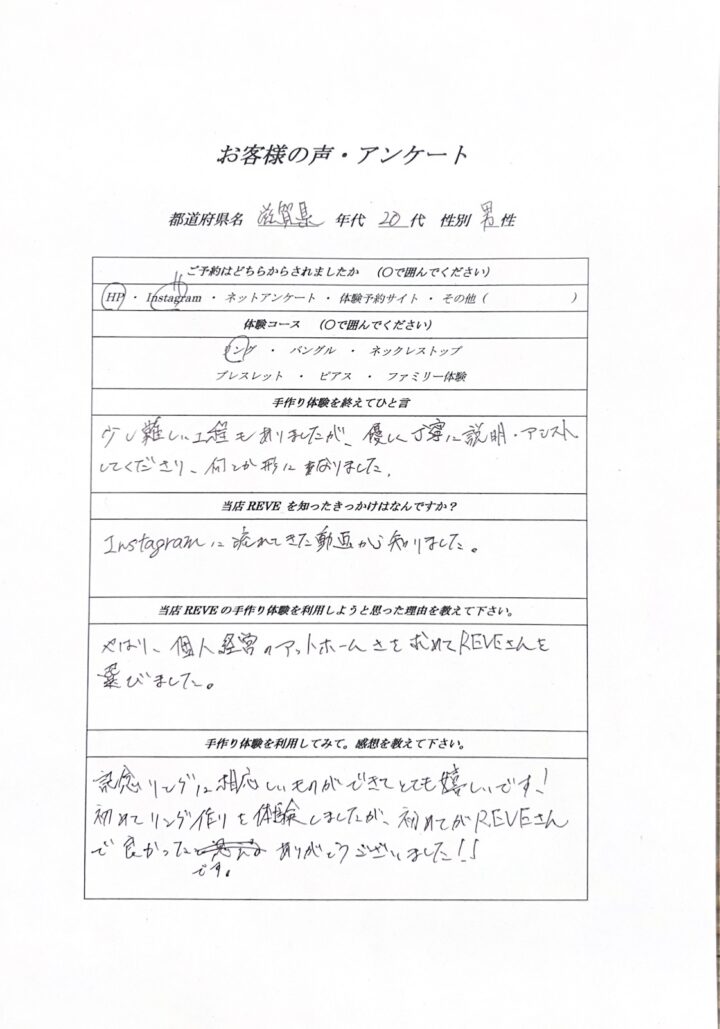 お客様の声・アンケート
都道府県名 滋賀県 年代 20 代 性別 男性
ご予約はどちらからされましたか （〇で囲んでください）
HP ・ Instagram ・ ネットアンケート ・ 体験予約サイト ・ その他（ ）
体験コース （〇で囲んでください）
リング ・ バングル ・ ネックレストップ
ブレスレット ・ ピアス ・ ファミリー体験
手作り体験を終えてひと言
少し難しい工程もありましたが、優しく丁寧に説明・アシスト
してくださり、何とか形になりました。
当店 REVE を知ったきっかけはなんですか？
Instagramに流れてきた動画から知りました。
当店 REVE の手作り体験を利用しようと思った理由を教えて下さい。
やはり、個人経営のアットホームさを求めてREVEさんを
選びました。
手作り体験を利用してみて。感想を教えて下さい。
記念リングに相応しいものができてとても嬉しいです！
初めてリング作りを体験しましたが、初めてがREVEさん
で良かった ありがとうございました！！
です。